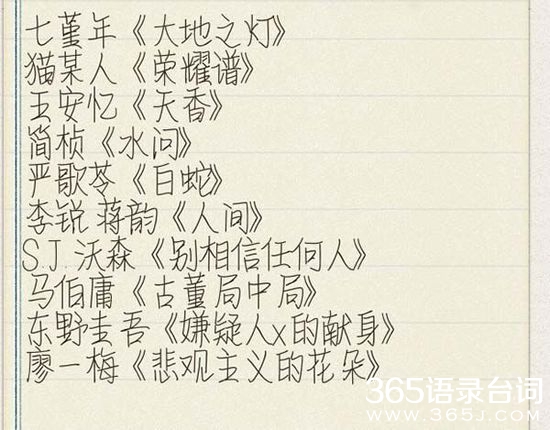 七堇年《大地之灯》
猫某人《荣耀谱》
王安忆《天香》
简桢《水问》
严歌苓《白蛇》
李锐 蒋韵《人间》
S.J.沃森《别相信任何人》
马伯庸《古董局中局》
东野圭吾《嫌疑人x的献身》
廖一梅《悲观主义的花朵》
365语录台词
www.365j.com